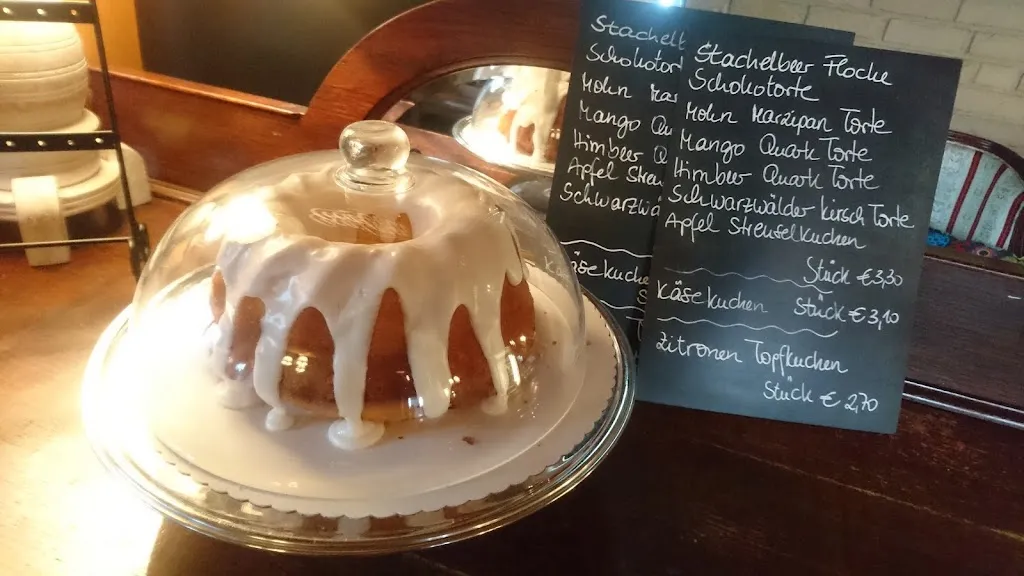 Stachelb
Schokotor
Mohn Mar
Mango Qu
Himbeer Q
Apfel Streu
Schwarzwä
Käsekuche
Stachelbeer Flocke
Schokotorte
Mohn Marzipan Torte
Mango Quark Torte
Himbeer Quark Torte
Schwarzwälder Kirsch Torte
Apfel Streuselkuchen
Stück € 3,30
Käsekuchen Stück € 3,10
Zitronen Topfkuchen
Stück € 2,70